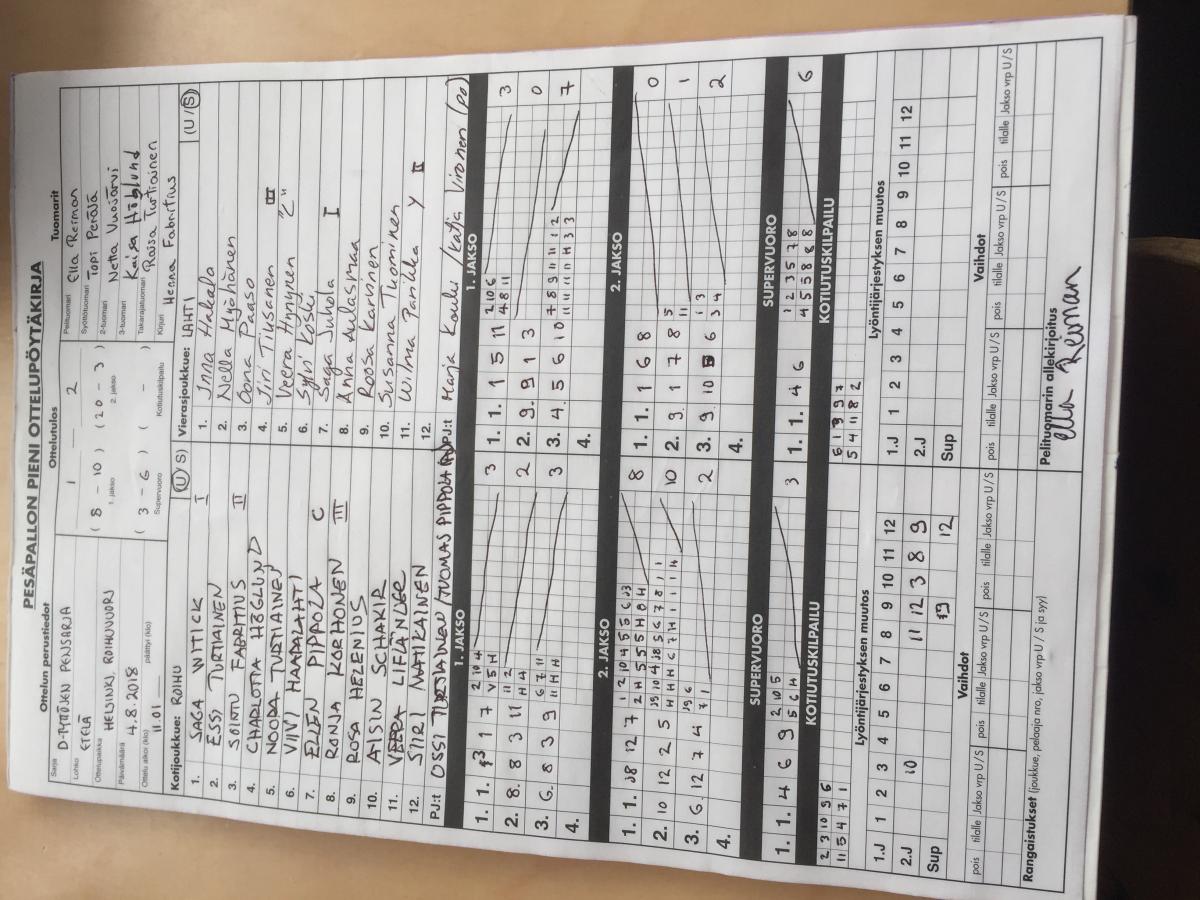 PESÄPALLON PIENI OTTELUPÖYTÄKIRJA
Ottelun perustiedot
Sarja D-TYTTÖJEN PENSARJA
Lohko ETELÄ
Ottelupaikka HELSINKI, ROIHUVUORI
Päivämäärä 4.8.2018
Ottelu alkoi (klo) 11.01 päättyi (klo)
Ottelutulos
1 2
( 8 - 10 ) ( 20 - 3 )
1. jakso 2. jakso
( 3 - 6 ) ( - )
Supervuoro Kotiutuskilpailu
Tuomarit
Pelituomari Ella Reiman
Syöttötuomari Topi Perälä
2-tuomari Netta Vuojärvi
3-tuomari Kaisa Höglund
Takarajatuomari Raisa Turtiainen
Kirjuri Henna Fabritius
Kotijoukkue: ROIHU (U/S)
1. SAGA WITICK I
2. ESSI TURTIAINEN
3. SOINTU FABRITIUS II
4. CHARLOTTA HÖGLUND
5. NOORA TURTIAINEN
6. VIIVI HAAPALAHTI
7. ELLEN PIPPOLA C
8. RONJA KORHONEN III
9. ROSA HEENIUS
10. AISIN SCHAKIR
11. LIELÄNDER
12. SIIRI MATIKAINEN
PJ:t OSSI TURTIAINEN / TUOMAS PIPPOLA
Vierasjoukkue: LAHTI (U/S)
1. Inna Hakala
2. Nella Myöhänen
3. Oona Paaso
4. Jiri Tiusanen III
5. Veera Hynynen "C"
6. Sylvi Koski
7. Saga Juhola I
8. Anna Aulasmaa
9. Roosa Karvinen
10. Susanna Tuominen
11. Wilma Parikka Y II
12.
PJ:t Marja Koulu / Katja Vironen (po)
1. JAKSO
1. 1. 1 7 3
2. 8. 8 3 11 2
3. 6. 8 3 9 3
4.
1. JAKSO
1. 1. 1 5 11 3
2. 9. 9 1 3 0
3. 4. 5 6 10 7
4.
2. JAKSO
1. 1. 12 7 8
2. 10 12 2 5 10
3. 6 12 7 4 2
4.
2. JAKSO
1. 1. 1 6 8 0
2. 9. 1 7 8 1
3. 9 10 6 2
4.
SUPERVUORO
1. 1. 4 6 9 3
2 10 5
5 6 H
SUPERVUORO
1. 1. 4 6 6
1 2 3 5 7 8
4 5 5 8 8 8
KOTIUTUSKILPAILU
2 3 10 9 6
11 5 4 7 1
KOTIUTUSKILPAILU
6 1 3 9 7
5 4 11 8 2
Lyöntijärjestyksen muutos
1.J 1 2 3 4 5 6 7 8 9 10 11 12
2.J 10 11 12 3 8 9
Sup 12
Lyöntijärjestyksen muutos
1.J 1 2 3 4 5 6 7 8 9 10 11 12
2.J
Sup
Vaihdot
pois tilalle Jakso vrp U/S pois tilalle Jakso vrp U/S pois tilalle Jakso vrp U/S
Vaihdot
pois tilalle Jakso vrp U/S pois tilalle Jakso vrp U/S pois tilalle Jakso vrp U/S
Rangaistukset (joukkue, pelaaja nro, jakso vrp U / S ja syy)
Pelituomarin allekirjoitus
Ella Reiman